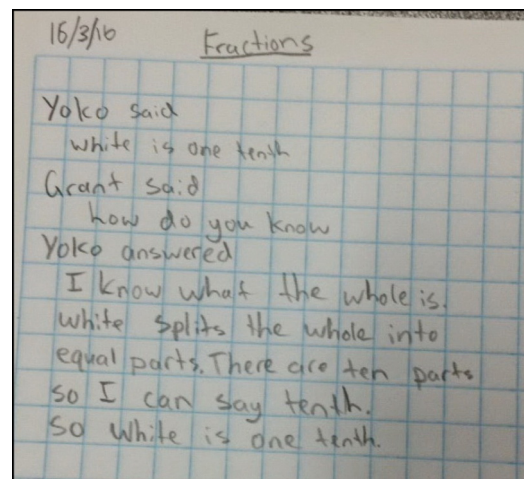 16/3/16
Fractions
Yoko said
white is one tenth
Grant said
how do you know
Yoko answered
I know what the whole is.
White splits the whole into
equal parts. There are ten parts
so I can say tenth.
So white is one tenth.